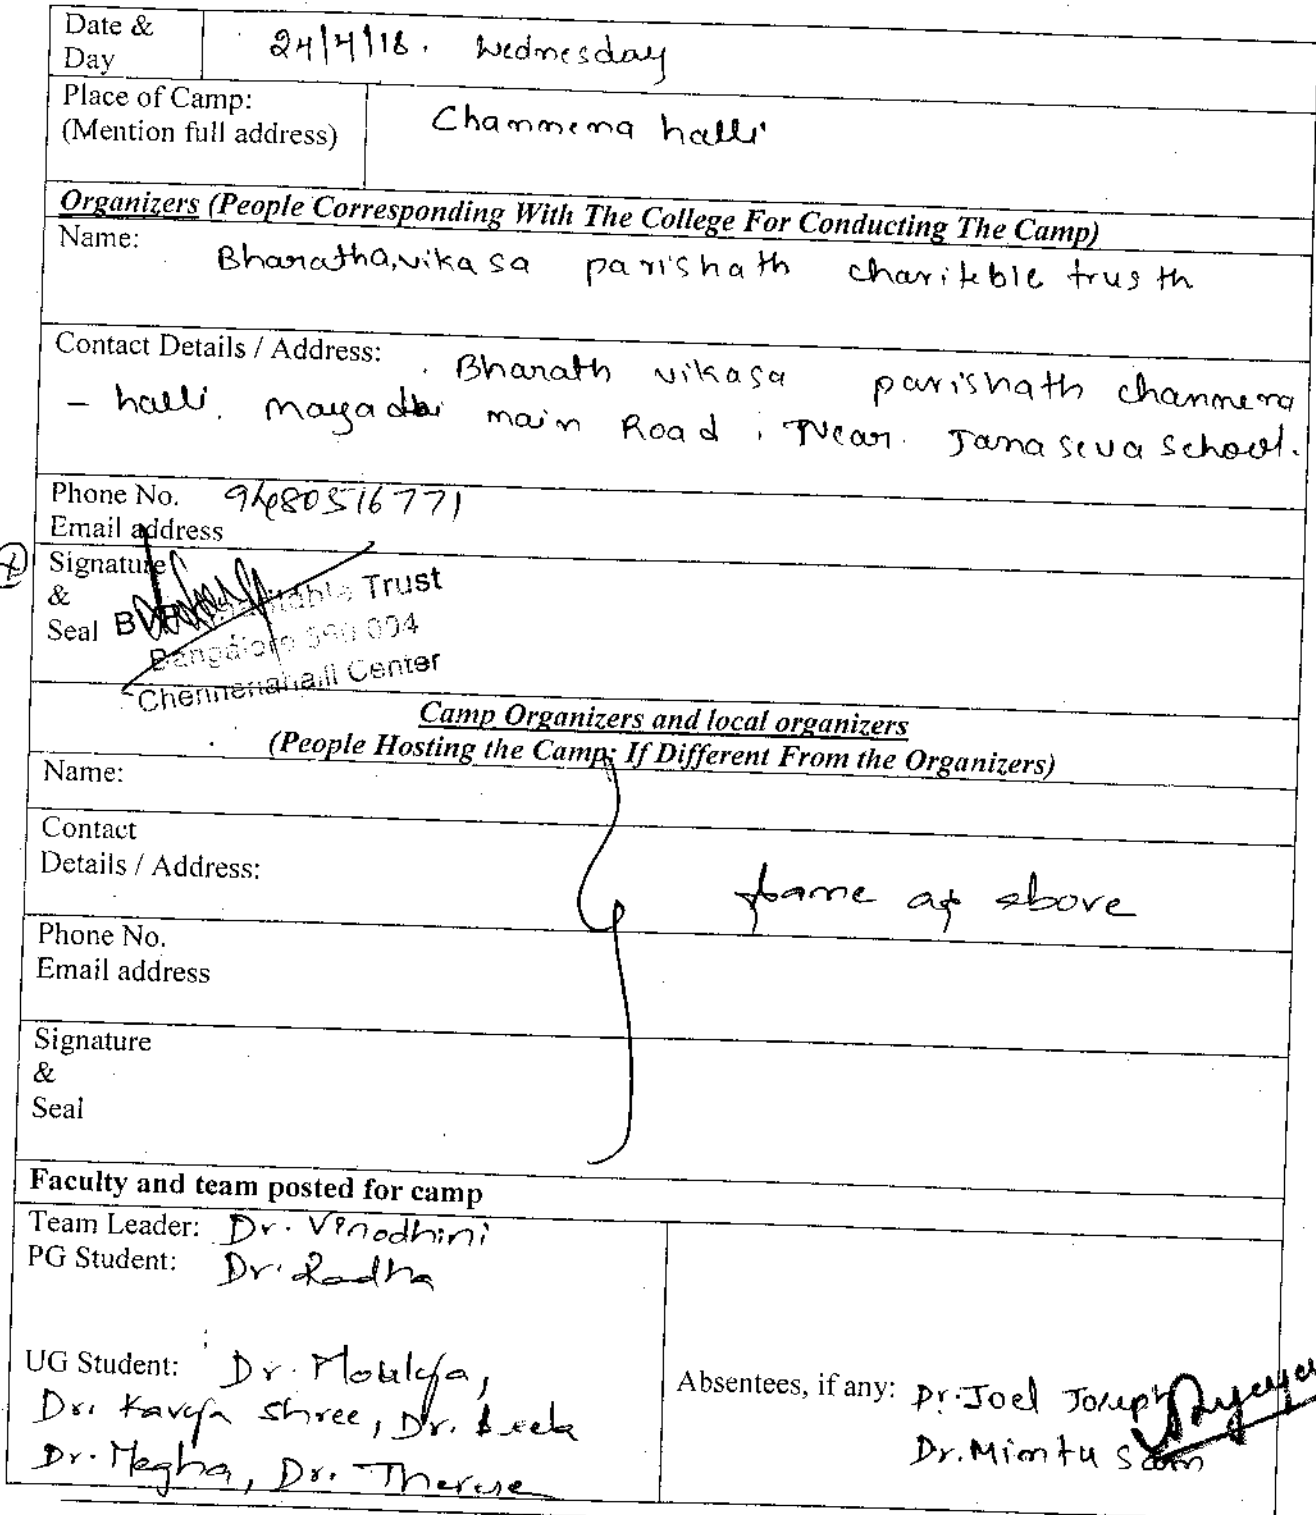 Date &
Day
24/4/18. Wednesday
Place of Camp:
(Mention full address)
Channena halli
Organizers (People Corresponding With The College For Conducting The Camp)
Name:
Bharatha, vikasa parishath charitable trusth
Contact Details / Address: Bharath vikasa parishath channena
- halli. Magadi main Road, Near. Janaseva School.
Phone No. 9480516771
Email address
Signature
&
Seal
Trust
Bangalore
Chennenahalli Center
Camp Organizers and local organizers
(People Hosting the Camp; If Different From the Organizers)
Name:
Contact
Details / Address:
Same as above
Phone No.
Email address
Signature
&
Seal
Faculty and team posted for camp
Team Leader: Dr. Vinodhini
PG Student: Dr. Radha
UG Student: Dr.
Dr. Kavya Shree, Dr.
Dr. Megha, Dr. Therese
Absentees, if any: Dr. Joel Joseph
Dr. Mintu Sam